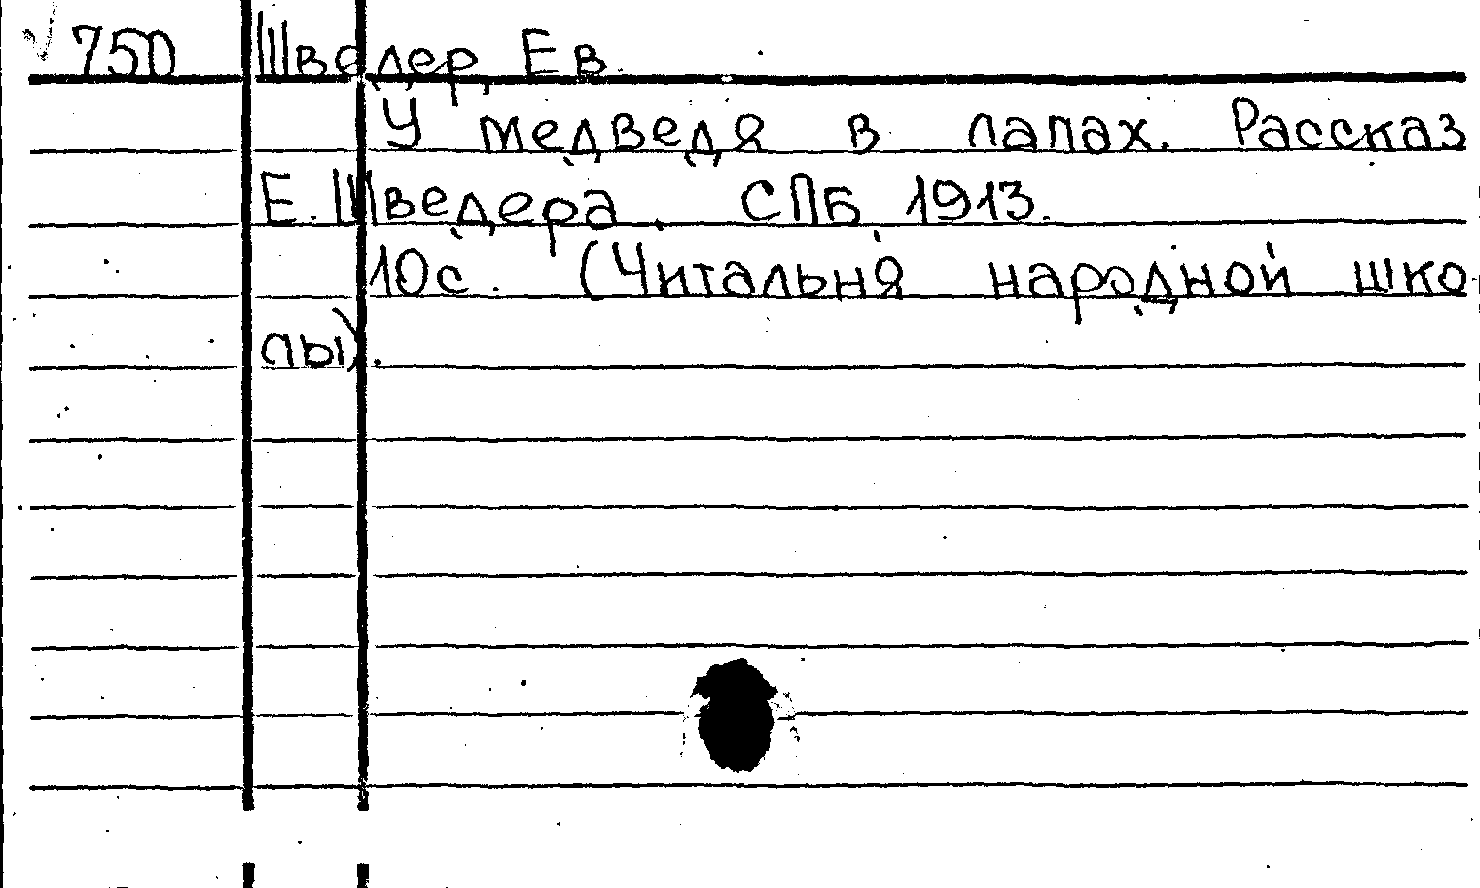 √ 750 Шведер, Ев.
У медведя в лапах. Рассказ
Е. Шведера. СПБ, 1913.
10с. (Читальня народной шко
лы).